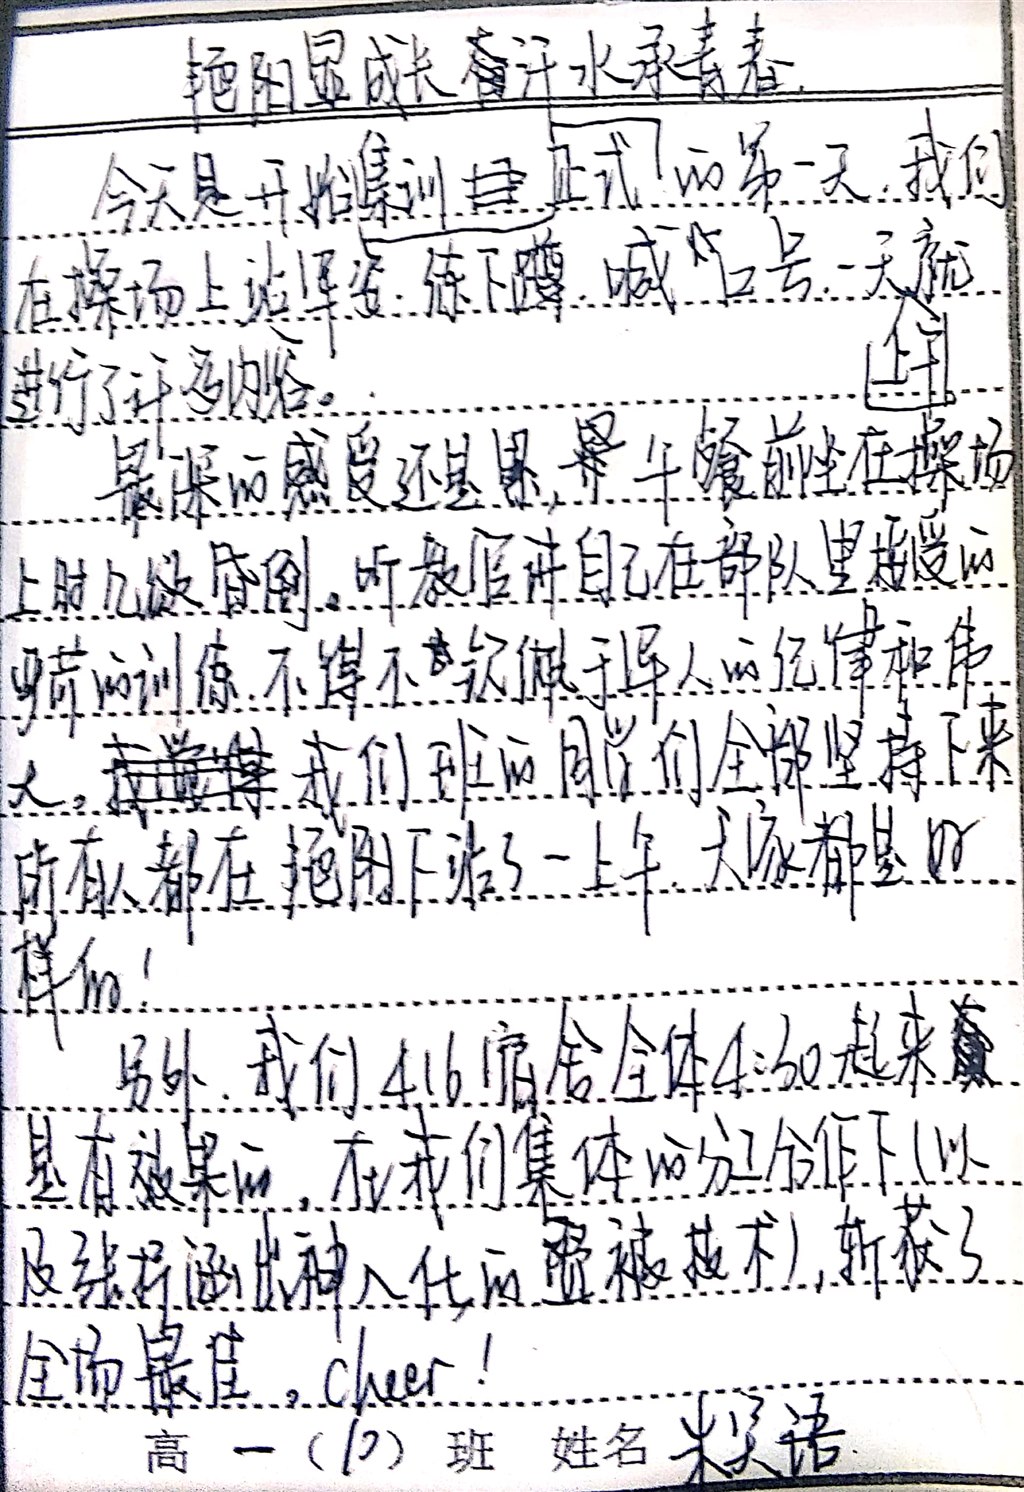 艳阳显成长 汗水承青春
今天是开始集训正式的第一天，我们
在操场上站军姿、练下蹲、喊口号，一天就
上午
进行了许多内容。
最深的感受还是累，午餐前坐在操场
上时几欲昏倒。听教官讲自己在部队里接受的
的训练，不得不钦佩于军人的纪律和伟
大。我们班的同学们全部坚持下来
所有人都在艳阳下站了一上午，大家都是好
样的！
另外，我们416宿舍全体4:30起来
是有效果的，在我们集体的分工合作下（以
及张析涵出神入化的叠被技术），斩获了
全场最佳。cheer！
高一（12）班 姓名 语